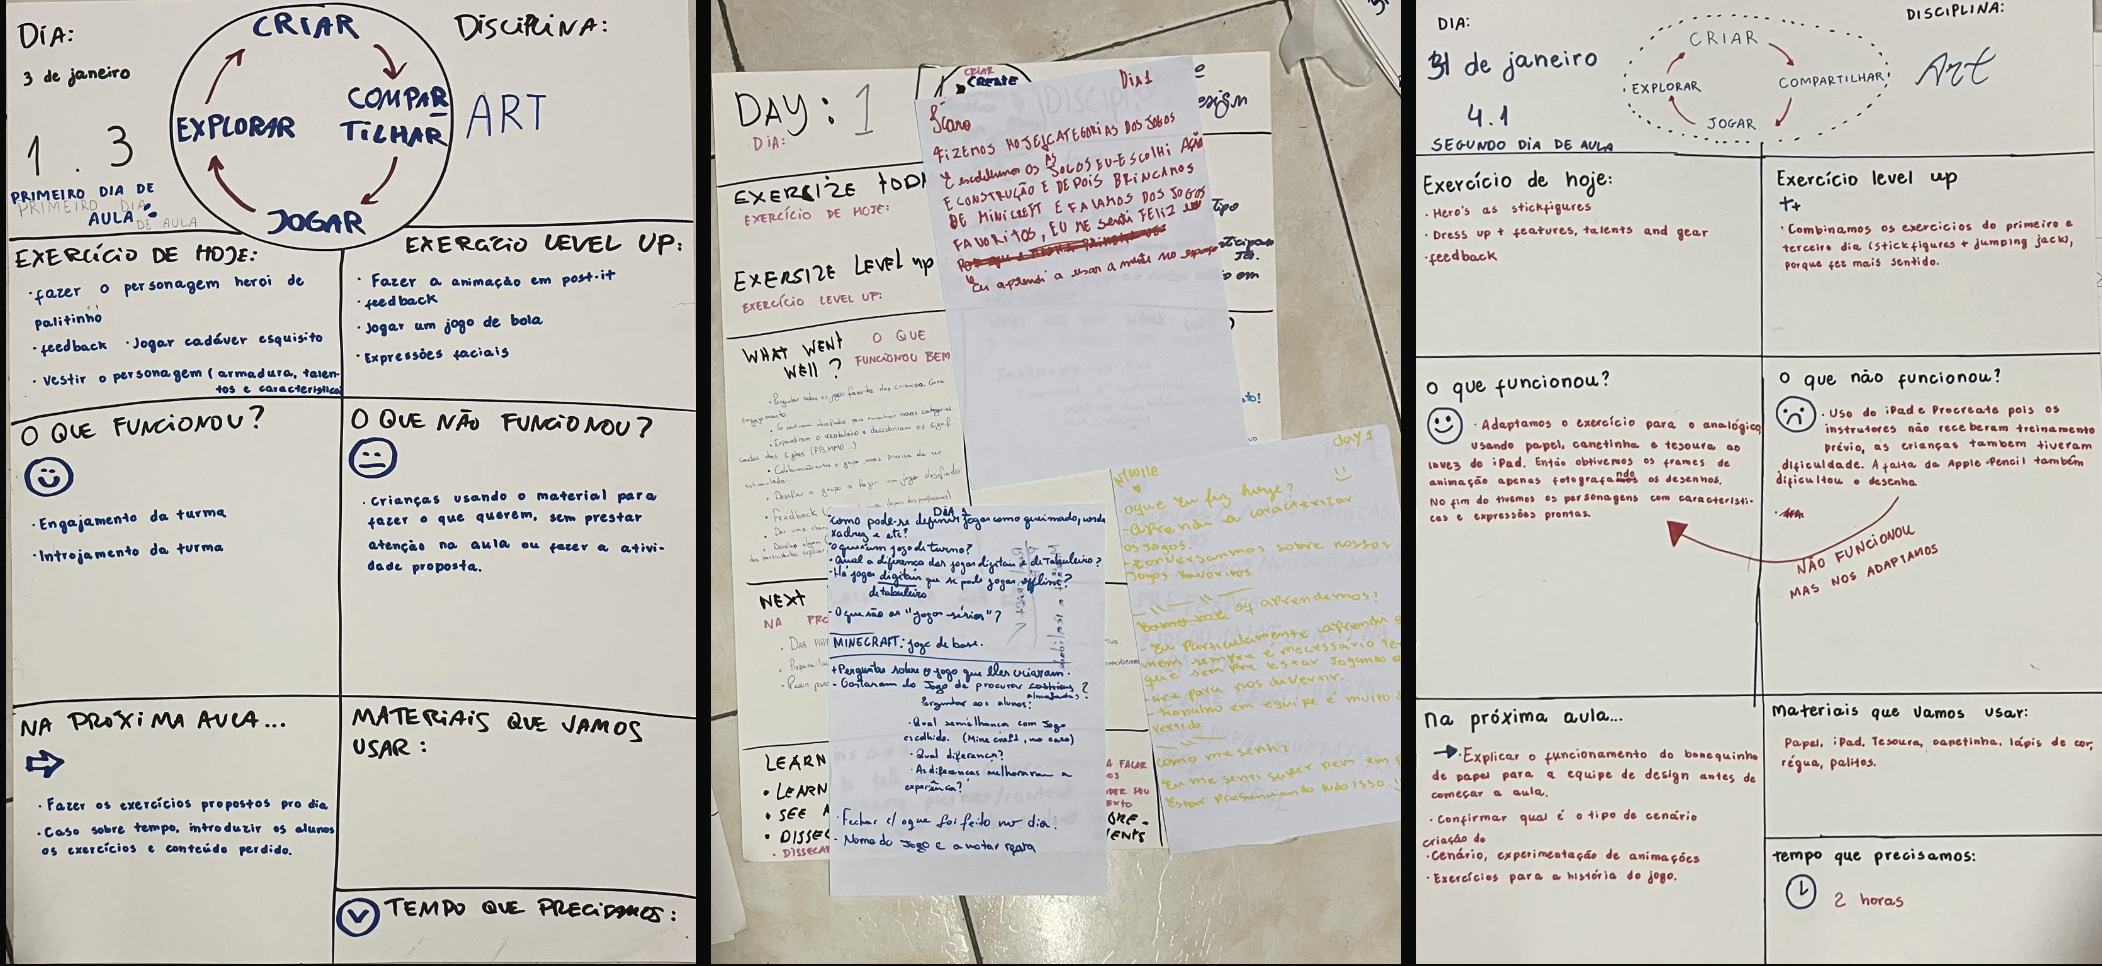 DIA:
3 de janeiro
1.3
PRIMEIRO DIA DE
PRIMEIRO DIA
AULA
DE AULA
CRIAR
COMPAR
TILHAR
JOGAR
EXPLORAR
DISCIPLINA:
ART
EXERCÍCIO DE HOJE:
• fazer o personagem heroi de
palitinho
• feedback • Jogar cadáver esquisito
• Vestir o personagem (armadura, talen-
tos e característica
EXERCÍCIO LEVEL UP:
• Fazer a animação em post-it
• feedback
• Jogar um jogo de bola
• Expressões faciais
O QUE FUNCIONOU?
• Engajamento da turma
• Introjamento da turma
O QUE NÃO FUNCIONOU?
• Crianças usando o material para
fazer o que querem, sem prestar
atenção na aula ou fazer a ativi-
dade proposta.
NA PRÓXIMA AULA...
• Fazer os exercícios propostos pro dia
• Caso sobre tempo, introduzir os alunos
os exercícios e conteúdo perdido.
MATERIAIS QUE VAMOS
USAR:
TEMPO QUE PRECISAMOS:
DAY: 1
DIA:
CRIAR
CREATE
EXERCIZE TODA
EXERCÍCIO DE HOJE:
EXERSIZE LEVEL up
EXERCÍCIO LEVEL UP:
WHAT WENT
WELL?
O QUE
FUNCIONOU BEM
NEXT
NA PRÓ
LEARN
• LEARN
• SEE
• DISSEC
• DISSECA
Dia 1
Ícaro
FIZEMOS HOJE CATEGORIAS DOS JOGOS
E escolhemos OS JOGOS EU ESCOLHI AÇÃO
E CONSTRUÇÃO E DEPOIS BRINCAMOS
DE MINICREFT E FALAMOS DOS JOGOS
FAVORITOS, EU ME senti FELIZ
Eu aprendi a usar a mente no
DIA 1
Como pode-se definir jogos como queimado, corda
xadrez e etc?
• O que é um jogo de turno?
• Qual a diferença dos jogos digitais e de tabuleiro?
• Há jogos digitais que se pode jogar offline?
de tabuleiro
• O que são os "jogos sérios"?
MINECRAFT: jogo de base.
+ Perguntas sobre o jogo que eles criaram.
- Gostaram do Jogo de procurar almofadas?
Perguntar aos alunos:
• Qual semelhança com jogo
escolhido. (Minecraft, no caso)
• Qual diferença?
• As diferenças melhoraram a
experiência?
• Fechar c/ o que foi feito no dia.
- Nome do Jogo e anotar
day 1
Nicolle
oque Eu fiz hoje?
- aprendi a caracterizar
os Jogos.
- conversamos sobre nossos
Jogos Favoritos.
oq aprendemos?
- Eu Particulamente aprendi
nem sempre é necessário
que sempre estar Jogando
para nos divertir.
- trabalho em equipe é muito
como me senti?
Eu me senti super bem em
Estar presenciando tudo isso.
DIA:
31 de janeiro
4.1
SEGUNDO DIA DE AULA
CRIAR
COMPARTILHAR
JOGAR
EXPLORAR
DISCIPLINA:
Art
Exercício de hoje:
• Hero's as stickfigures
• Dress up + features, talents and gear
• feedback
Exercício level up
• Combinamos os exercícios do primeiro e
terceiro dia (stickfigures + jumping jack),
porque fez mais sentido.
O que funcionou?
• Adaptamos o exercício para o analógico
usando papel, canetinha e tesoura ao
invez do iPad. Então obtivemos os frames de
animação apenas fotografando os desenhos.
No fim do tivemos os personagens com caracteristi-
cas e expressões prontas.
O que não funcionou?
• Uso do iPad e Procreate pois os
instrutores não receberam treinamento
prévio, as crianças tambem tiveram
dificuldade. A falta da Apple Pencil também
dificultou o desenho
NÃO FUNCIONOU
MAS NOS ADAPTAMOS
Na próxima aula...
• Explicar o funcionamento do bonequinho
de papel para a equipe de design antes de
começar a aula.
• Confirmar qual é o tipo de cenário
criação do
• Cenário, experimentação de animações
• Exercícios para a história do jogo.
Materiais que vamos usar:
Papel, iPad, Tesoura, canetinha, lápis de cor,
régua, palitos.
tempo que precisamos:
2 horas